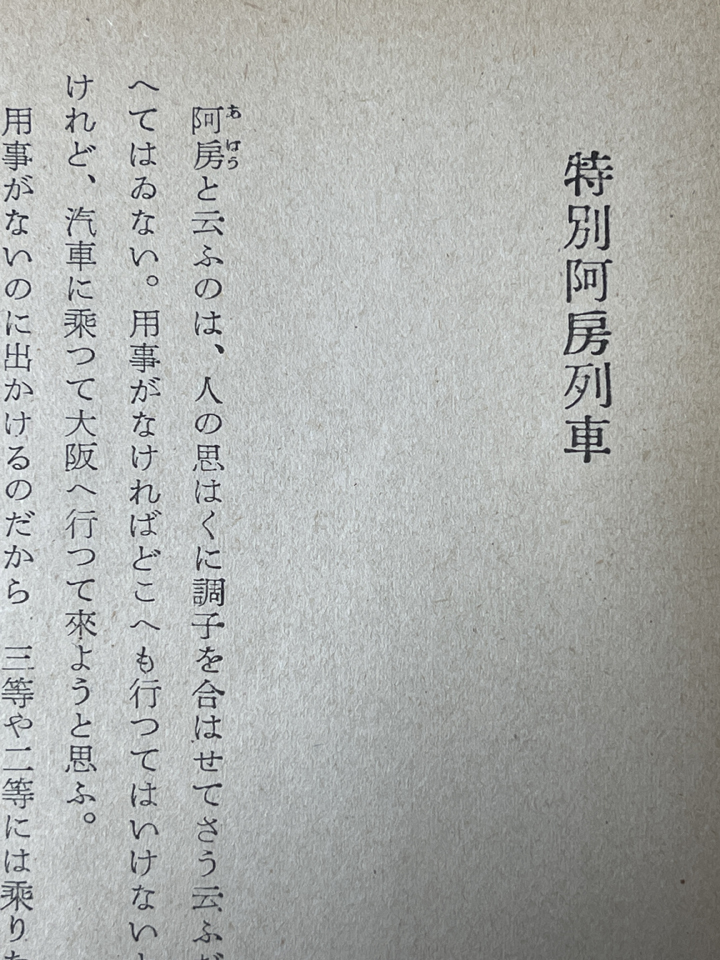 特別阿房列車
阿房と云ふのは、人の思はくに調子を合はせてさう云ふだ
へてはゐない。用事がなければどこへも行つてはいけないと
けれど、汽車に乗つて大阪へ行つて來ようと思ふ。
用事がないのに出かけるのだから、三等や二等には乗りた